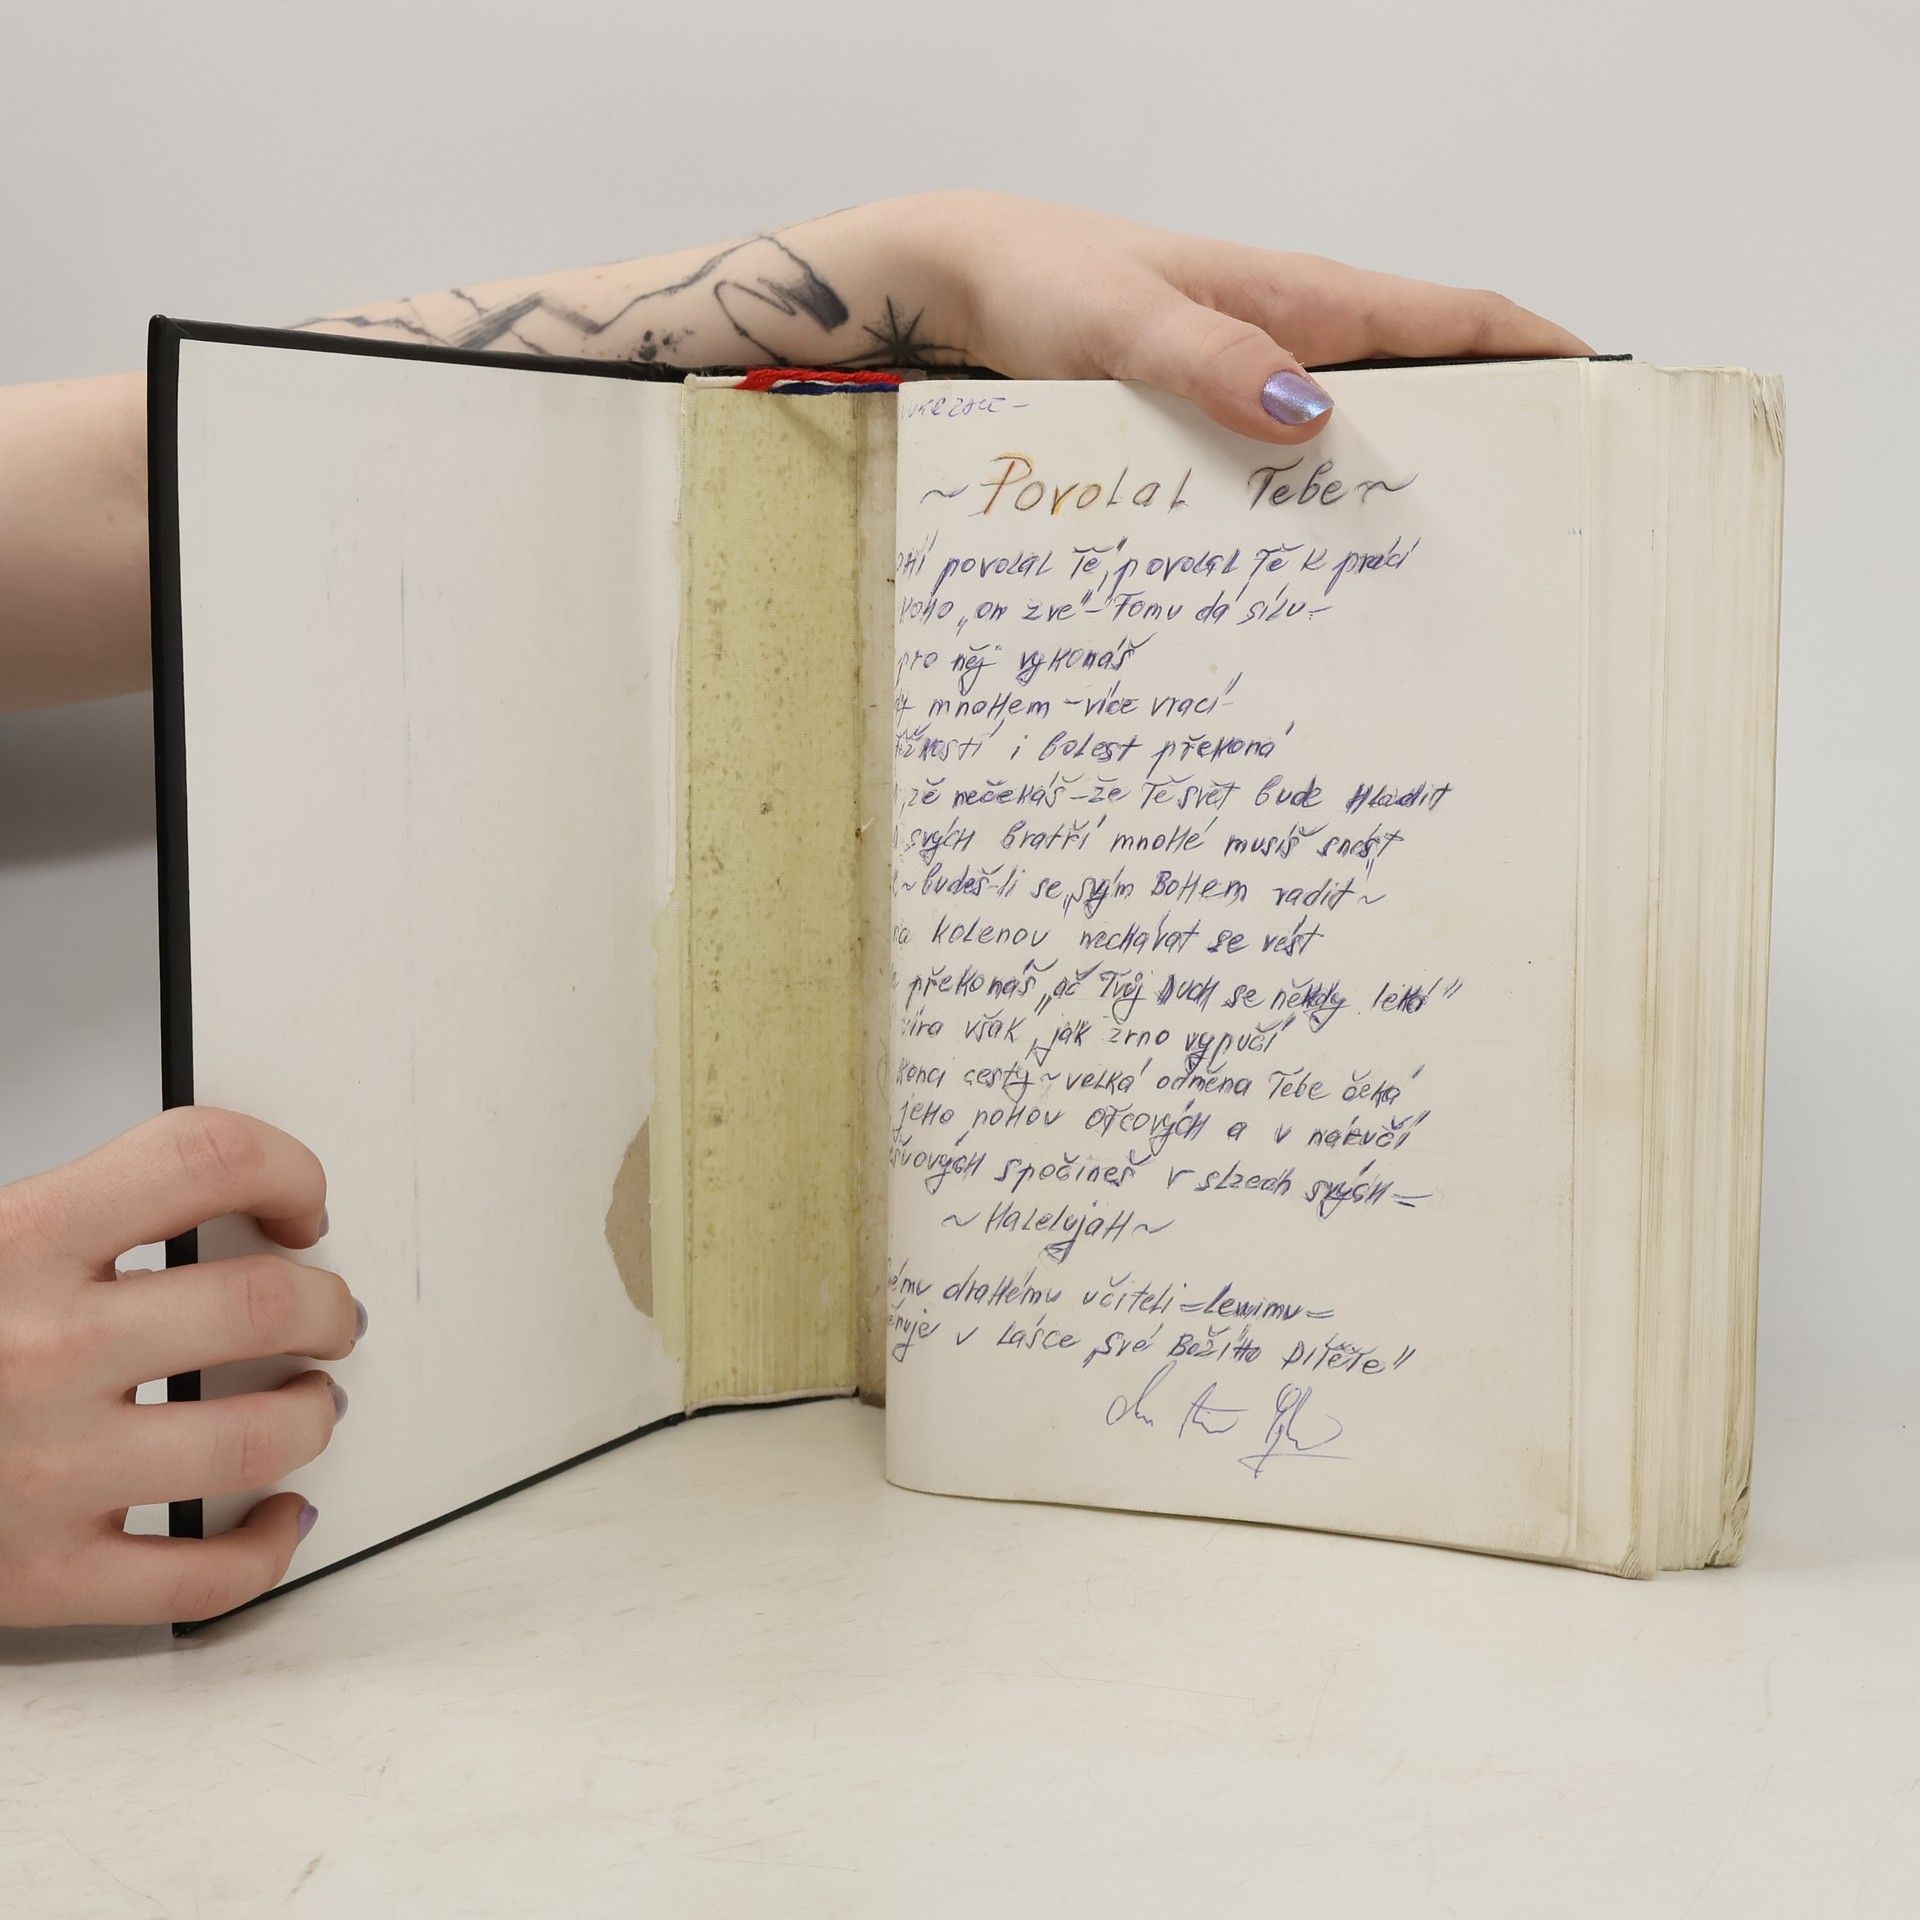 ~ Povolal Tebe ~
povolal Tě", povolal Tě k práci
koho „on zve"-"Tomu dá sílu-
pro něj" vykonáš
mnohem - více vrací-
i bolest překoná
že nečekáš - že Tě svět bude hladit
svých bratří mnohé musíš snést
~ budeš-li se „svým Bohem radit ~
na kolenou nechávat se vést
překonáš „ač Tvůj Duch se někdy leká"
víra však „jak zrno vypučí"
konci cesty ~ velká odměna Tebe čeká
jeho nohou otcových a v náručí"
spočineš v slzách svých =
~ Halelujah ~
drahému učiteli = Lewimu =
v Lásce „své Božího Dítěte"